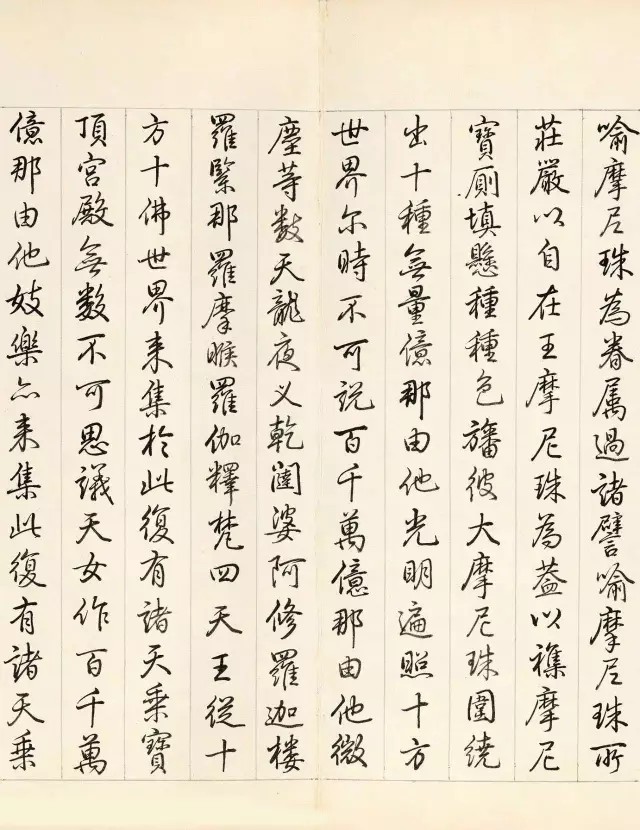 喻摩尼珠為眷属過諸譬喻摩尼珠所
莊嚴以自在王摩尼珠為蓋以襍摩尼
寶廁填懸種種色旛彼大摩尼珠圍繞
出十種無量億那由他光明遍照十方
世界尔時不可説百千萬億那由他微
塵等数天龍夜义乾闥婆阿修羅迦楼
羅緊那羅摩睺羅伽釋梵四天王從十
方十佛世界来集於此復有諸天乘寶
頂宮殿無数不可思議天女作百千萬
億那由他妓樂亦来集此復有諸天乘